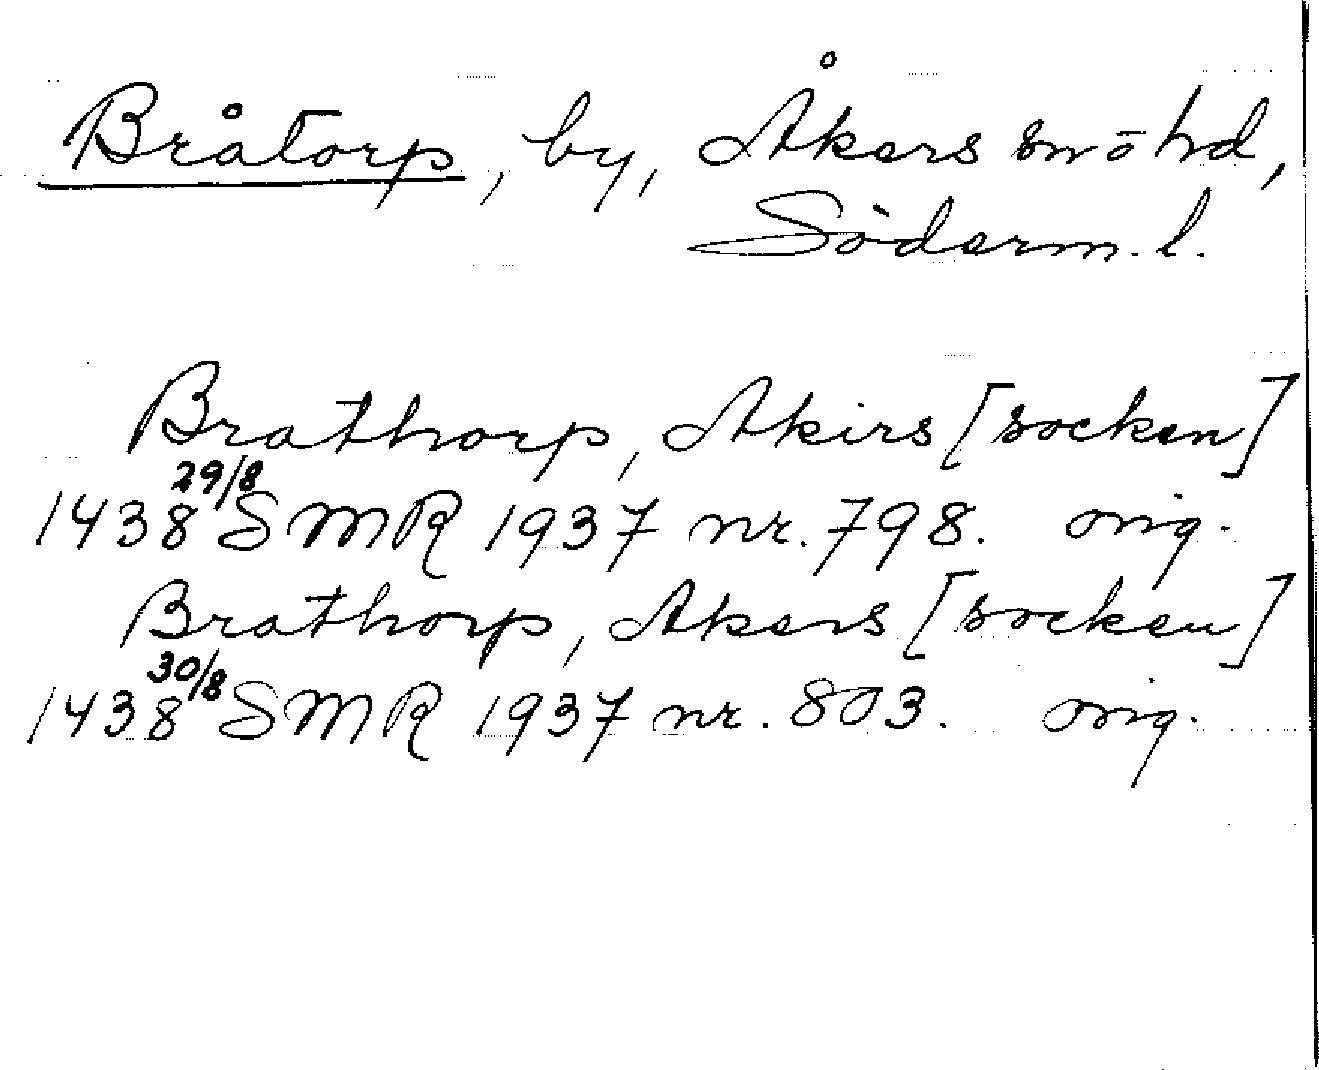 Bråtorp, by, Åkers sn Ö hd,
Söderm. l.
Brathorp, Akirs [socken]
1438 29/8 SMR 1937 nr. 798. orig.
Brathorp, Akers [socken]
1438 30/8 SMR 1937 nr. 803. orig.